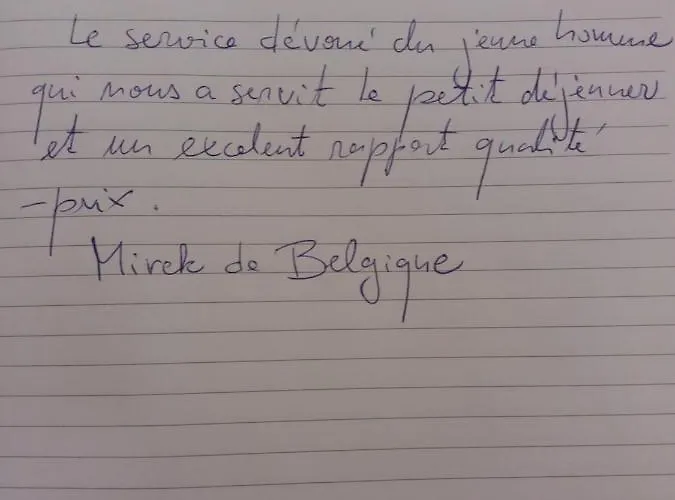 Le service dévoué du jeune homme
qui nous a servit le petit déjenner
et un excelent rapport qualité
-prix.
Mirek de Belgique